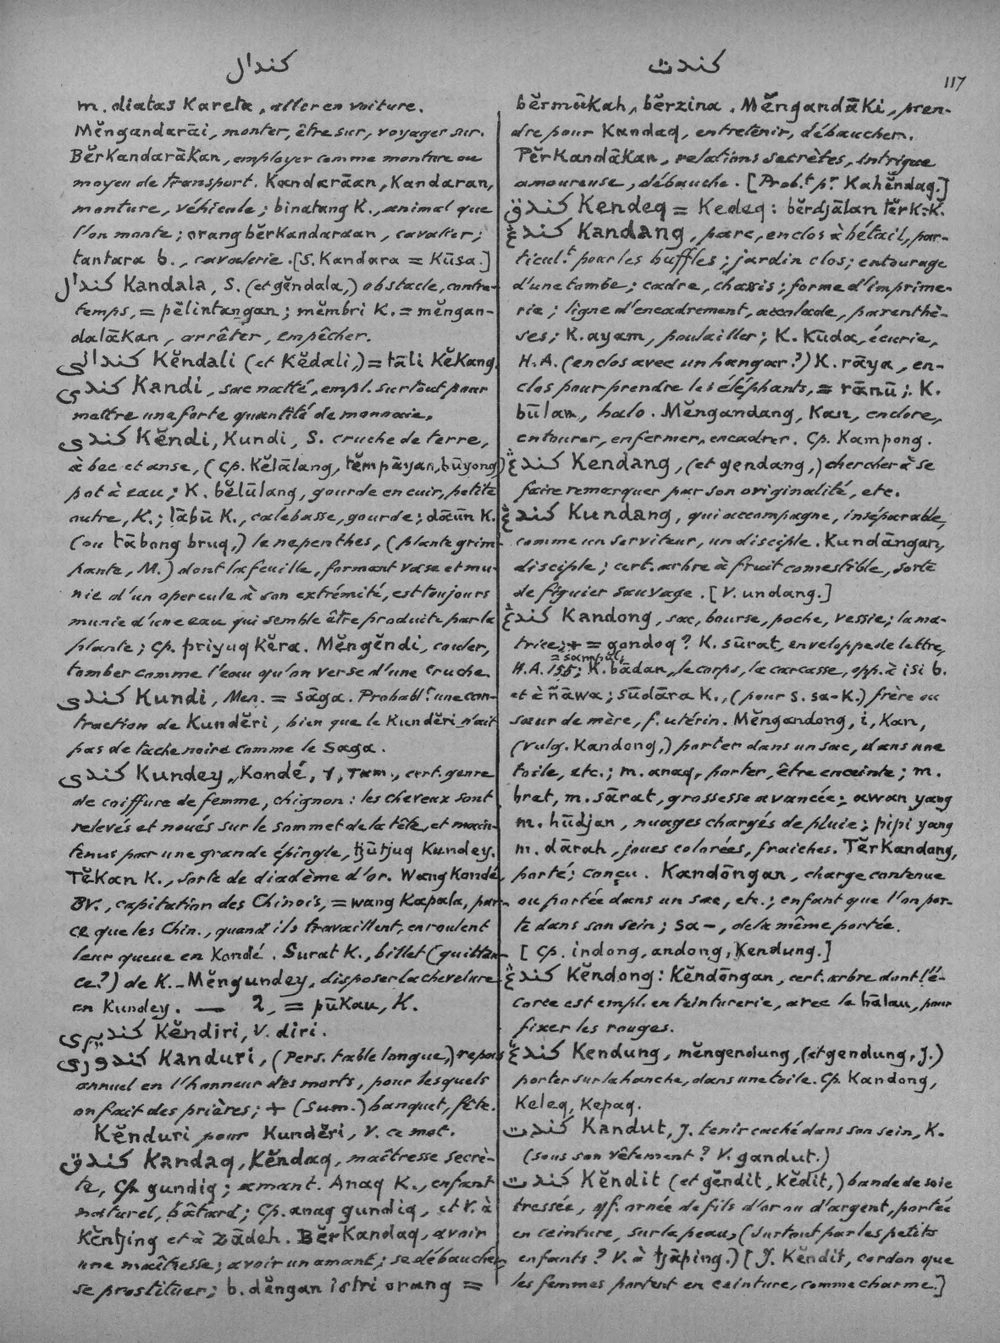 كندال
كندت
117
m. diatas Kareta, aller en voiture.
Mĕngandarāi, monter, être sur, voyager sur.
BĕrKandarāKan, employer comme monture ou
moyen de transport. Kandarāan, Kandaran,
monture, véhicule; binatang K., animal que
l'on monte; orang bĕrKandaraan, cavalier;
tantara b., cavalerie. [S. Kandara = Kūsa.]
كندال Kandala, S. (et gĕndala,) obstacle, contre-
temps, = pĕlintangan; mĕmbri K. = mĕngan-
dalāKan, arrêter, empêcher.
كندالى Kĕndali (et Kĕdali,) = tāli KĕKang.
كندى Kandi, sac natté, empl. surtout pour
mettre une forte quantité de monnaie.
كندى Kĕndi, Kundi, S. cruche de terre,
à bec et anse, (cp. Kĕlālang, tĕmpāyan, būyong)
pot à eau; K. bĕlūlang, gourde en cuir, petite
outre, K.; lābū K., calebasse, gourde; dāūn K.
(ou tābong bruq,) le nepenthes, (plante grim-
pante, M.) dont la feuille, formant vase et mu-
nie d'un opercule à son extrémité, est toujours
munie d'une eau qui semble être produite par la
plante; cp. priyuq Kĕra. Mĕngĕndi, couler,
tomber comme l'eau qu'on verse d'une cruche.
كندى Kundi, Men. = sāga. Probabl.t une con-
traction de Kundĕri, bien que le Kundĕri n'ait
pas de tache noire comme le saga.
كندى Kundey, Kondé, 1, Tam., cert. genre
de coiffure de femme, chignon: les cheveux sont
relevés et noués sur le sommet de la tête, et main-
tenus par une grande épingle, tjūtjuq Kundey.
TĕKan K., sorte de diadème d'or. Wang Kondé,
BV., capitation des Chinois, = wang Kapala, par-
ce que les Chin., quand ils travaillent, enroulent
leur queue en Kondé. Surat K., billet (quittan-
ce?) de K. Mĕngundey, disposer la chevelure
en Kundey. — 2, = pūKau, K.
كنديرى Kĕndiri, V. diri.
كندورى Kanduri, (Pers. table longue,) repas
annuel en l'honneur des morts, pour lesquels
on fait des prières; + (Sum.) banquet, fête.
Kĕnduri pour Kundĕri, V. ce mot.
كندق Kandaq, Kĕndaq, maîtresse secrè-
te, cp. gundiq; amant. Anaq K., enfant
naturel, bâtard; Cp. anaq gundiq, et V. à
Kĕntjing et à zādeh. BĕrKandaq, avoir
une maîtresse; avoir un amant; se débaucher,
se prostituer; b. dĕngan istri orang =
bĕrmūkah, bĕrzina. MĕngandāKi, pren-
dre pour Kandaq, entretenir, débaucher.
PĕrKandāKan, relations secrètes, intrigue
amoureuse, débauche. [Prob.t p.r Kahĕndaq.]
كندق Kendeq = Kedeq: bĕrdjālan tĕrK.-K.
كندڠ Kandang, parc, enclos à bétail, par-
ticul.t pour les buffles; jardin clos; entourage
d'une tombe; cadre, châssis; forme d'imprime-
rie; ligne d'encadrement, accolade, parenthè-
ses; K. ayam, poulailler; K. Kūda, écurie,
H.A. (enclos avec un hangar?) K. rāya, en-
clos pour prendre les éléphants, = rānū; K.
būlan, halo. Mĕngandang, Kan, enclore,
entourer, enfermer, encadrer. Cp. Kampong.
كندڠ Kendang, (et gendang,) chercher à se
faire remarquer par son originalité, etc.
كندڠ Kundang, qui accompagne, inséparable,
comme un serviteur, un disciple. Kundāngan,
disciple; cert. arbre à fruit comestible, sorte
de figuier sauvage. [V. undang.]
كندڠ Kandong, sac, bourse, poche, vessie; la ma-
trice; + = gondoq? K. sūrat, enveloppe de lettre,
= sampūl,
H.A. 155; K. bādan, le corps, la carcasse, opp. à isi b.
et à ñāwa; sūdāra K., (pour s. sa-K.) frère ou
sœur de mère, f. utérin. Mĕngandong, i, Kan,
(vulg. Kandong,) porter dans un sac, dans une
toile, etc.; m. anaq, porter, être enceinte; m.
brat, m. sārat, grossesse avancée; awan yang
m. hūdjan, nuages chargés de pluie; pipi yang
m. dārah, joues colorées, fraîches. TĕrKandong,
porté; conçu. Kandōngan, charge contenue
ou portée dans un sac, etc.; enfant que l'on por-
te dans son sein; sa—, de la même portée.
[Cp. indong, andong, Kendung.]
كندڠ Kĕndong: Kĕndōngan, cert. arbre dont l'é-
corce est empl. en teinturerie, avec le bālau, pour
fixer les rouges.
كندڠ Kendung, mĕngendung, (et gendung, J.)
porter sur la hanche, dans une toile. Cp. Kandong,
Keleq, Kepaq.
كندت Kandut, J. tenir caché dans son sein, K.
(sous son vêtement? V. gandut.)
كندت Kĕndit (et gĕndit, Kĕdit,) bande de soie
tressée, qqf. ornée de fils d'or ou d'argent, portée
en ceinture, sur la peau, (surtout par les petits
enfants? V. à tjāping.) [J. Kĕndit, cordon que
les femmes portent en ceinture, comme charme.]